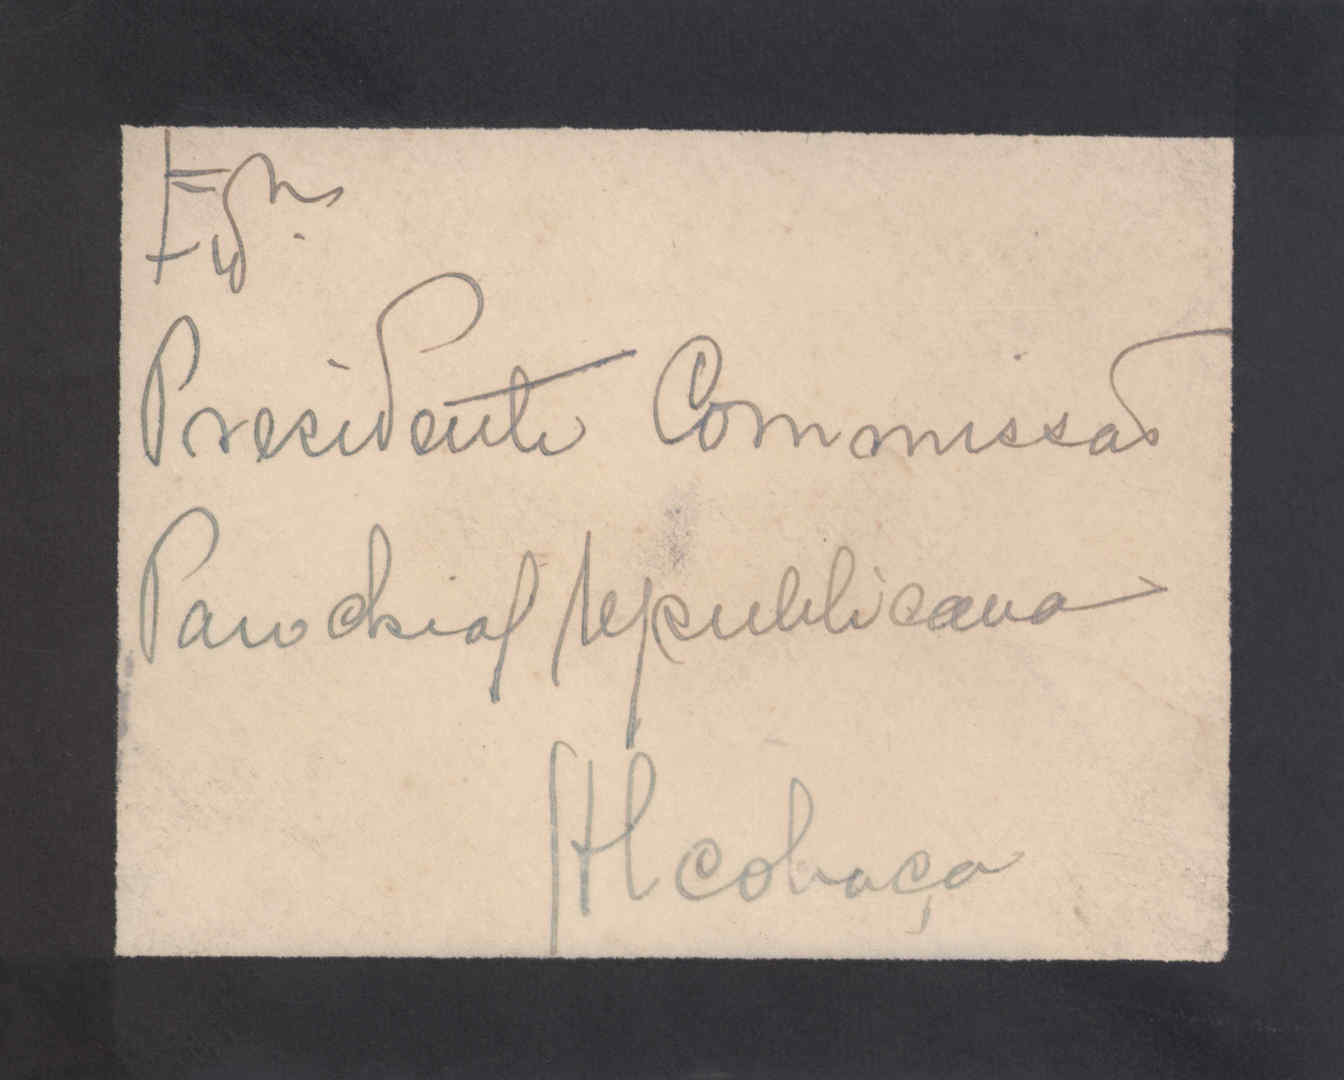 Presidente Commissão
Parochial Republicana
Alcobaça